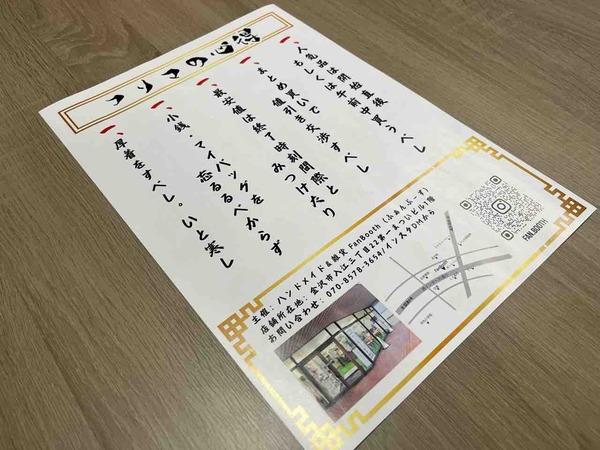 フリマの心得
一、人気品は開始直後
もしくは午前中買うべし
一、まとめ買いで
値引き交渉すべし
一、最安値は終了時刻間際とみつけたり
一、小銭・マイバッグを
忘るるべからず
一、厚着をすべし。いと寒し
主催：ハンドメイド&雑貨 FanBooth（ふぁんぶーす）
店舗所在地：金沢市入江三丁目22第一まついビル1階
お問い合わせ：070-8578-3654/インスタDMから
FAN.BOOTH